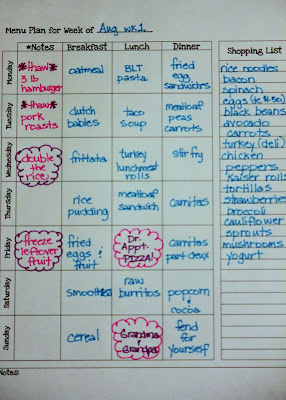 Menu Plan for Week of Aug wk 1
*Notes Breakfast Lunch Dinner
Shopping List
Monday
*thaw*
3 lb
hamburger
oatmeal
BLT
pasta
fried
egg
sandwiches
Tuesday
*thaw*
pork
roasts
dutch
babies
taco
soup
meatloaf
peas
carrots
Wednesday
double
the
rice
frittata
turkey
lunchmeat
rolls
stir fry
Thursday
rice
pudding
meatloaf
sandwich
carnitas
Friday
freeze
leftover
fruit
fried
eggs &
fruit
Dr.
Appt.
PIZZA!
carnitas
part deux
Saturday
smoothies
raw
burritos
popcorn
&
cocoa
Sunday
cereal
Grandma
&
Grandpa
fend
for
yourself
rice noodles
bacon
spinach
black beans
avocado
carrots
turkey (deli)
chicken
peppers
Kaiser rolls
tortillas
strawberries
broccoli
cauliflower
sprouts
mushrooms
yogurt
Notes: